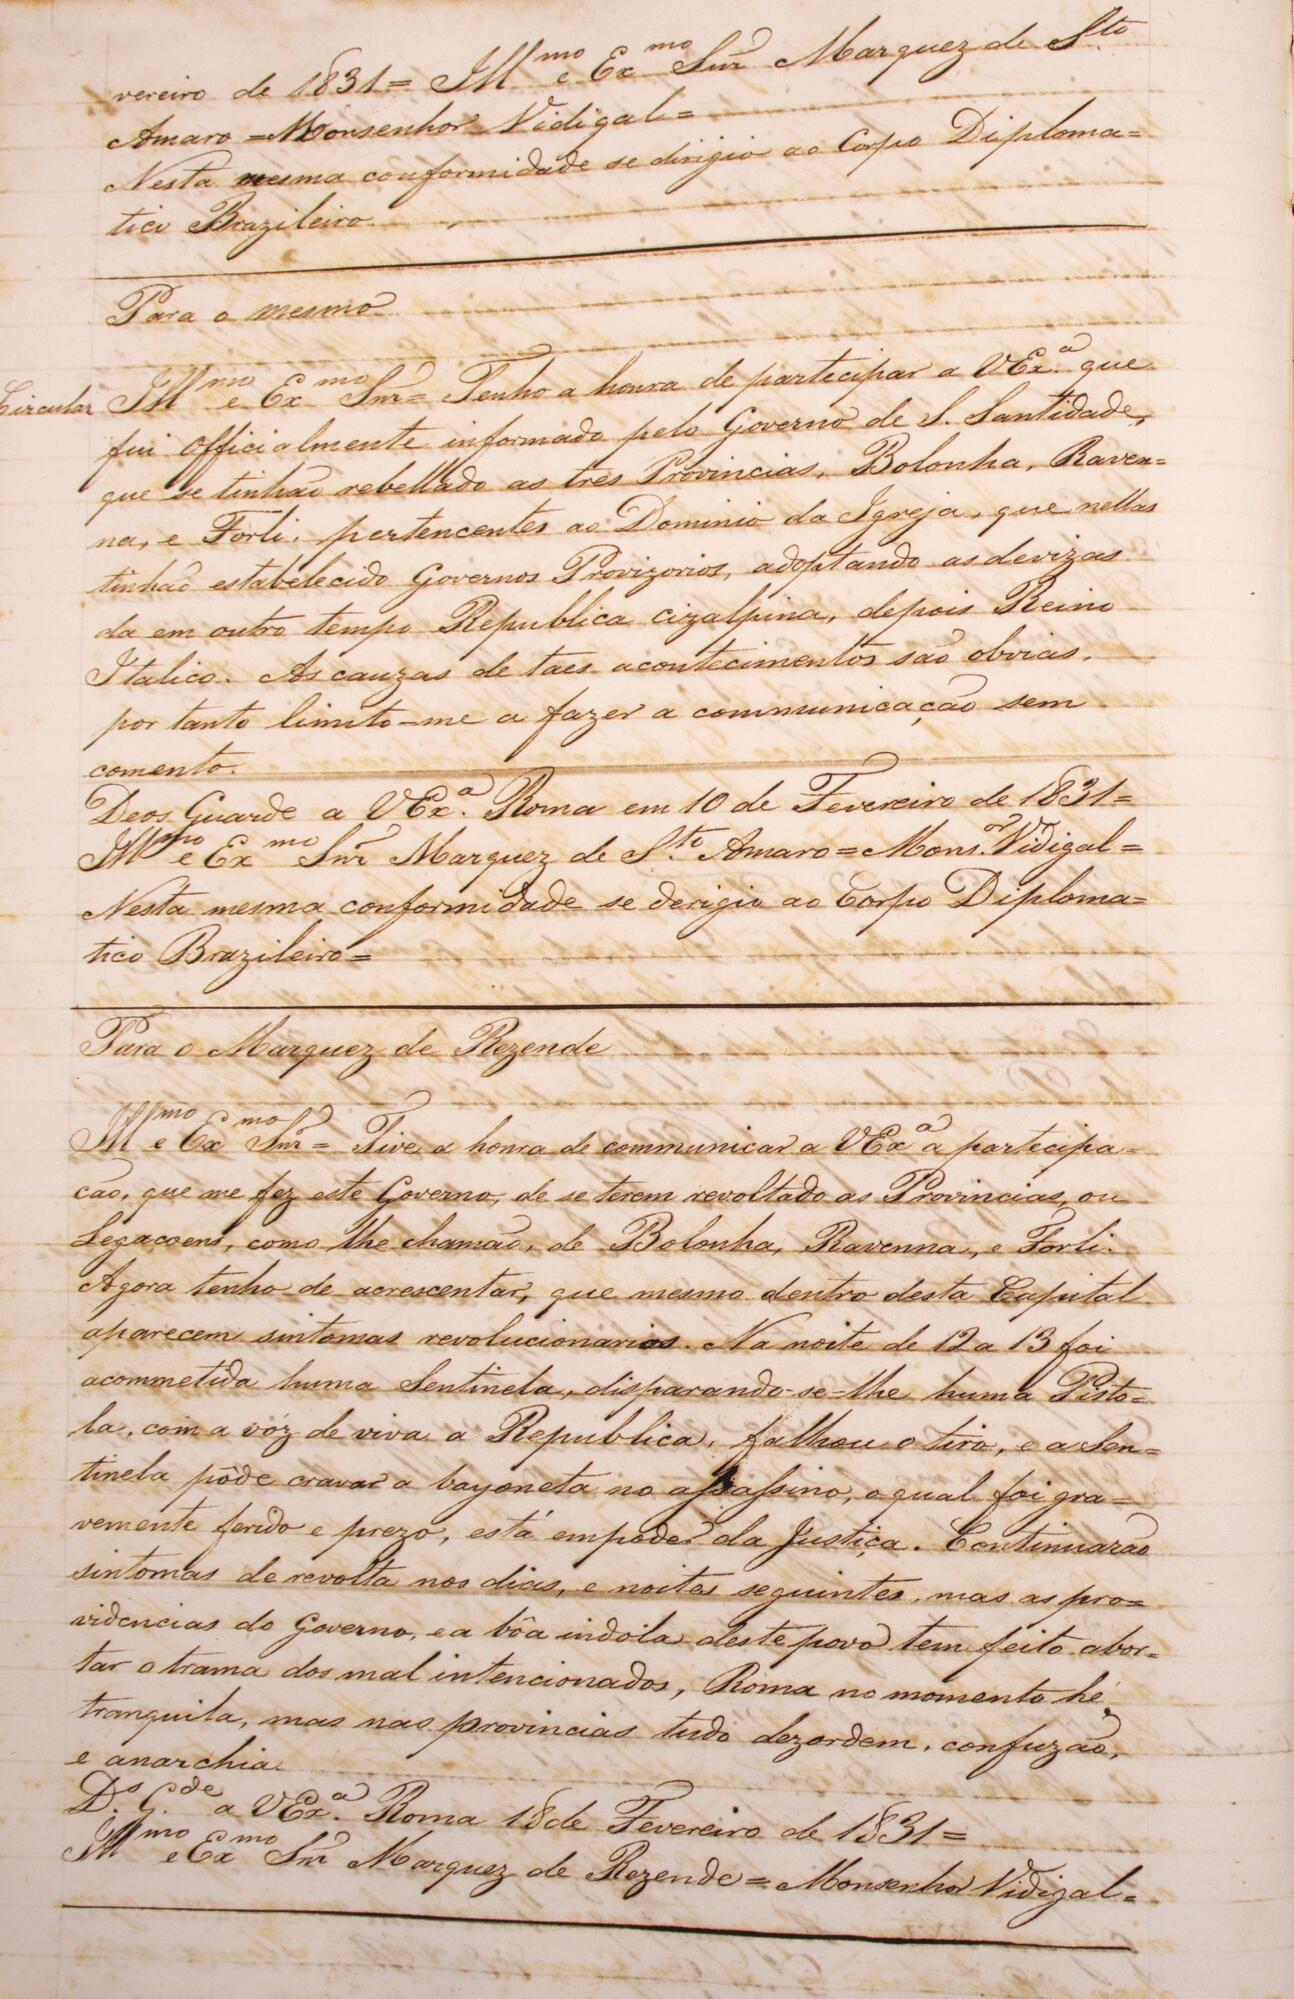 vereiro de 1831= Ill^mo e Ex^mo Snr Marquez de S^to
Amaro = Monsenhor Vidigal =
Nesta mesma conformidade se dirigio ao Corpo Diploma=
tico Brazileiro.
Para o mesmo
Circular Ill^mo e Ex^mo Snr = Tenho a honra de participar a VEx.^a que
fui officialmente informado pelo Governo de S. Santidade,
que se tinhão rebellado as tres Provincias, Bolonha, Raven=
na, e Forli, pertencentes ao Dominio da Igreja, que nellas
tinhão estabelecido Governos Provizorios, adoptando as devizas
da em outro tempo Republica cizalpina, depois Reino
Italico. As cauzas de taes acontecimentos são obvias,
por tanto limito-me a fazer a communicação sem
comento.
Deos Guarde a VEx.^a Roma em 10 de Fevereiro de 1831=
Ill^mo e Ex^mo Snr Marquez de S.^to Amaro = Mons.^or Vidigal =
Nesta mesma conformidade se derigio ao Corpo Diploma=
tico Brazileiro =
Para o Marquez de Rezende
Ill^mo e Ex^mo Snr = Tive a honra de communicar a VEx^a a partecipa=
cão, que me fez este Governo, de se terem revoltado as Provincias, ou
Legaçoens, como lhe chamão, de Bolonha, Ravenna, e Forli.
Agora tenho de acrescentar, que mesmo dentro desta Capital
aparecem sintomas revolucionarios. Na noite de 12 a 13 foi
acommetida huma Sentinela, disparando-se-lhe huma Pisto=
la, com a vóz de viva a Republica, falhou o tiro, e a Sen=
tinela pôde cravar a bayoneta no assassino, o qual foi gra=
vemente ferido e prezo, está em poder da Justiça. Continuarão
sintomas de revolta nos dias, e noites seguintes, mas as pro=
videncias do Governo, e a bôa indola deste povo tem feito abor=
tar o trama dos mal intencionados, Roma no momento hé
tranquila, mas nas provincias tudo dezordem, confuzão,
e anarchia.
D.^s G.^de a VEx.^a Roma 18 de Fevereiro de 1831=
Ill^mo e Ex^mo Snr Marquez de Rezende = Monsenhor Vidigal =